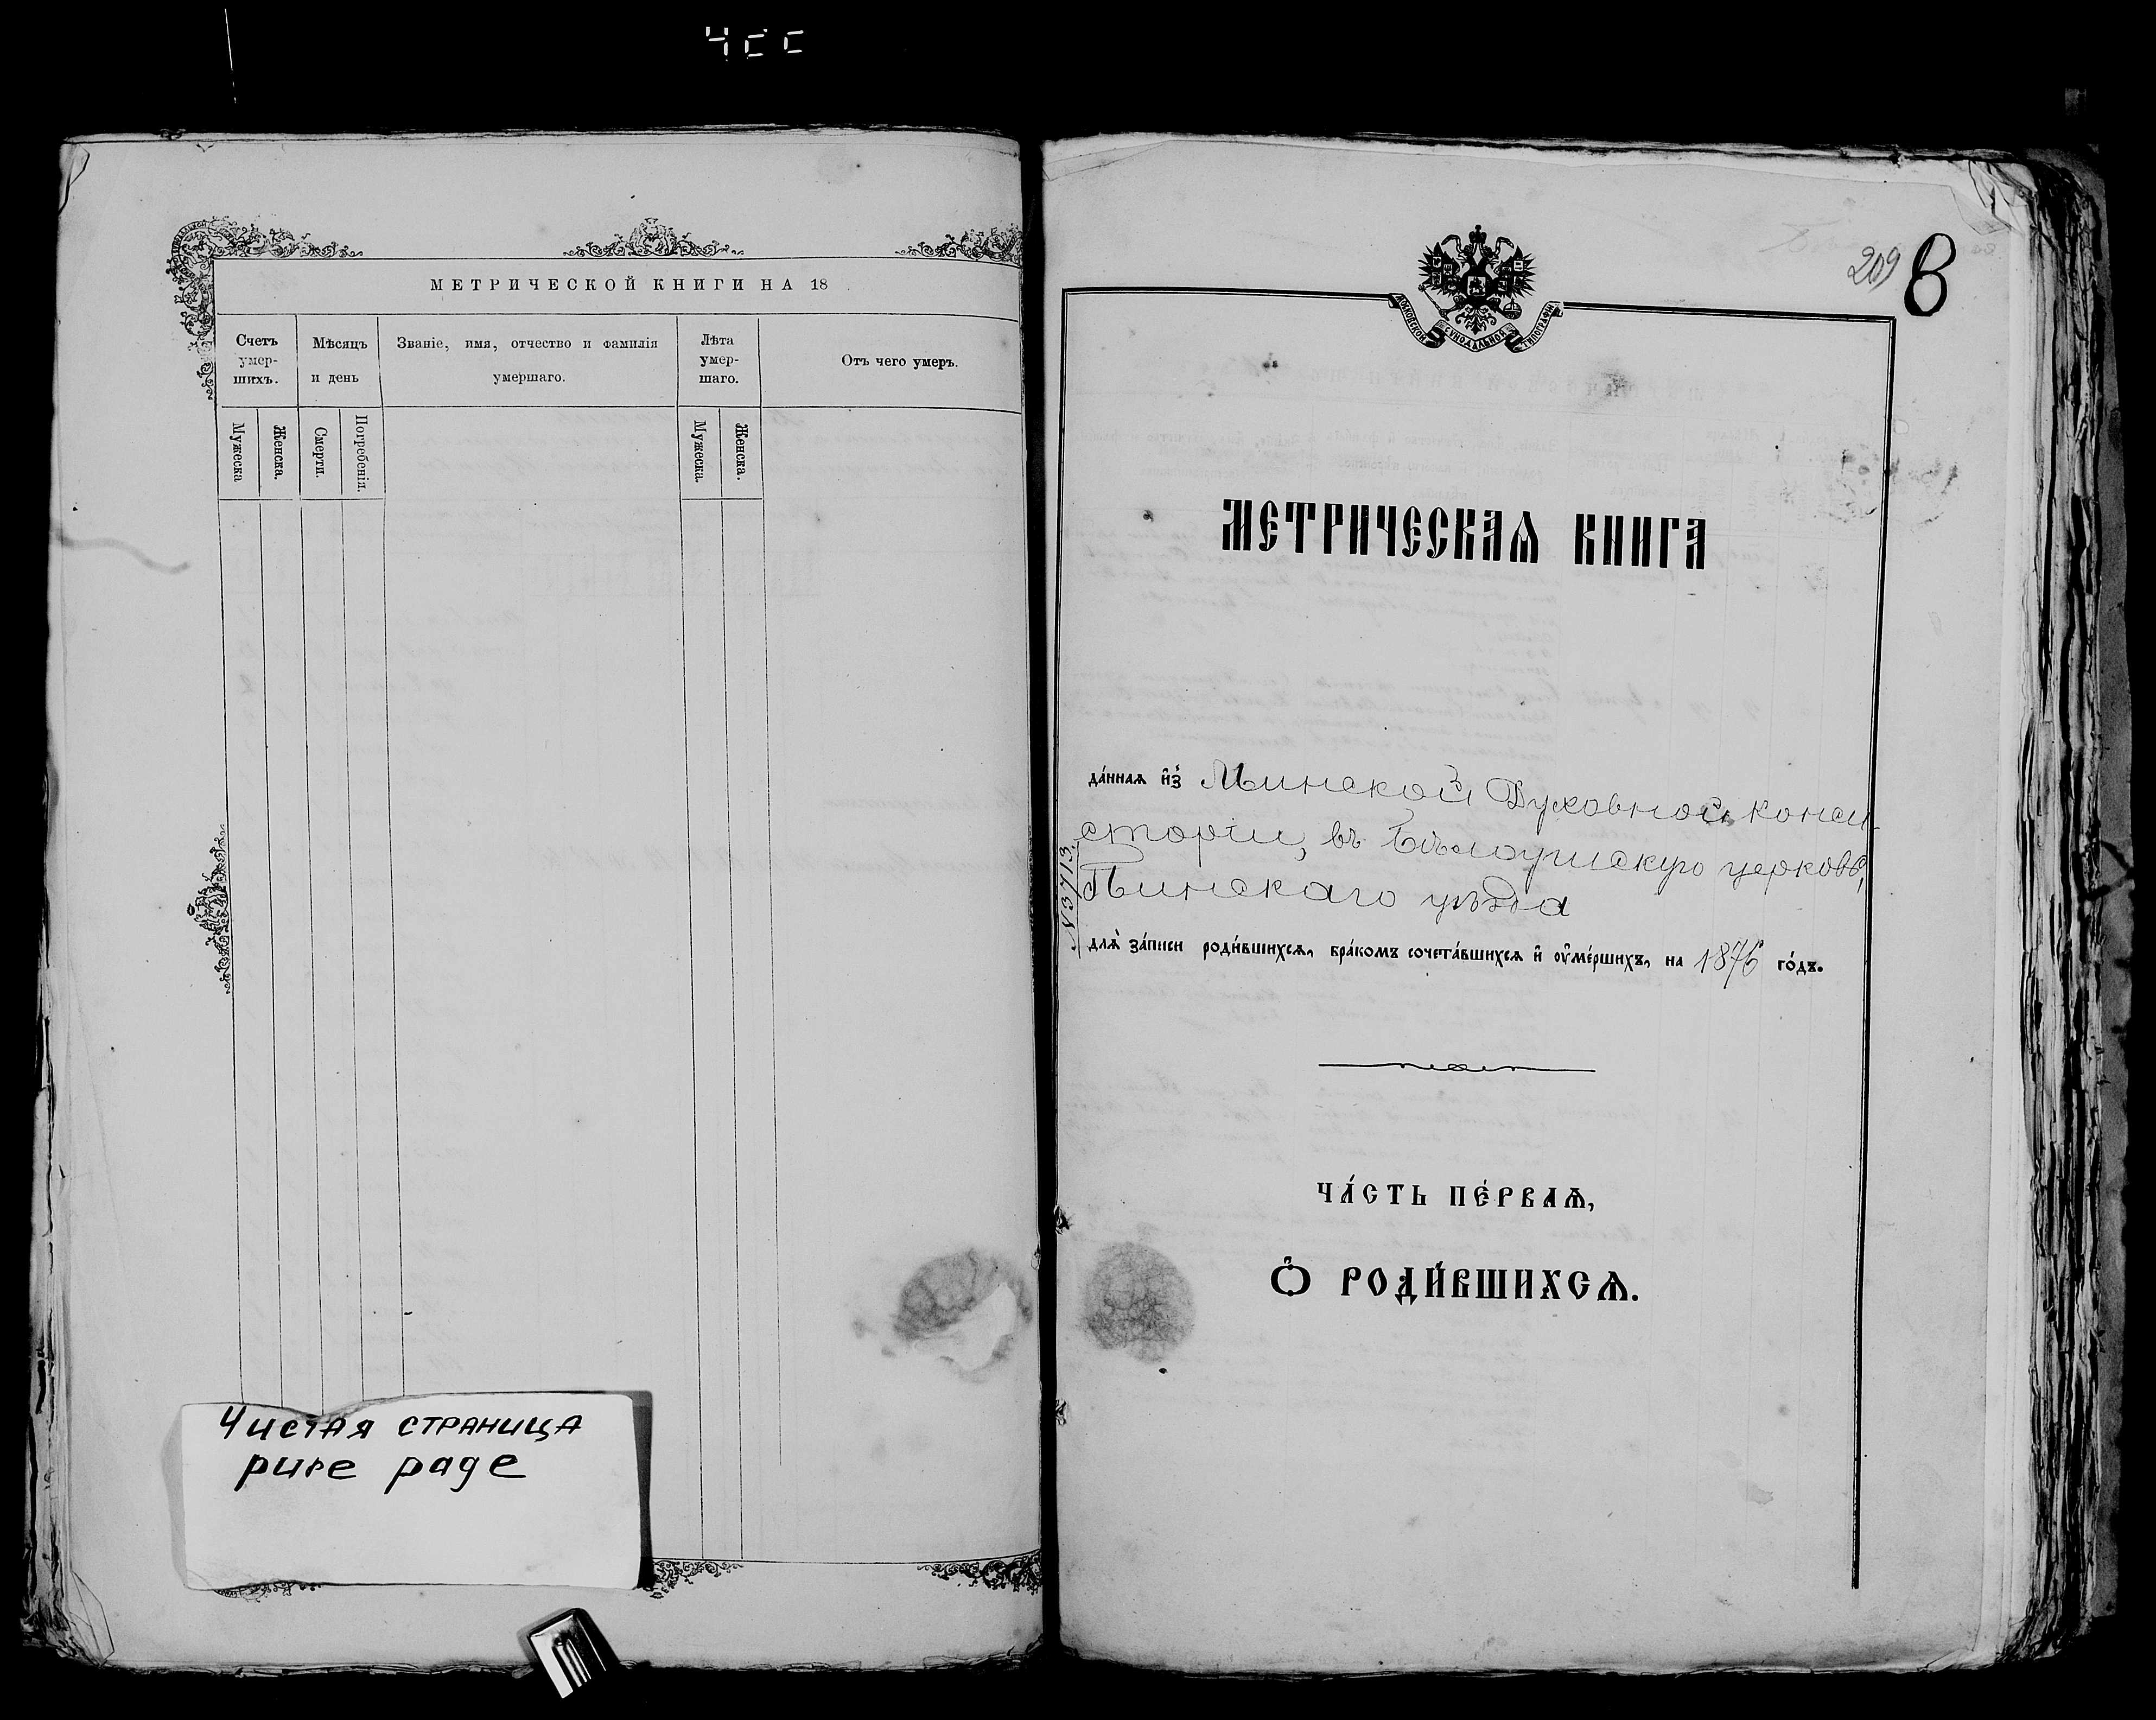 МЕТРИЧЕСКОЙ КНИГИ НА 18
Счетъ умер-шихъ.
Мѣсяцъ и день
Званіе, имя, отчество и фамилія умершаго.
Лѣта умер-шаго.
Отъ чего умеръ.
Мужеска
Женска.
Смерти.
Погребенія.
Мужеска.
Женска.
Чистая страница
pure page
209 8
МОСКОВСКОЙ СѴНОДАЛЬНОЙ ТИПОГРАФІИ
МЕТРИЧЕСКАѦ КНИГА
да́ннаѧ и҆з̾ Минской Духовной конси-
сторіи, въ Бѣлоушскую церковь,
Пинскаго уѣзда
№ 3713
для̀ за́писи роди́вшихсѧ, бра́комъ сочета́вшихсѧ и҆ ᲂу҆ме́ршихъ, на 1876 го́дъ.
ЧА́СТЬ ПЕ́РВАѦ,
Ѽ РОДИ́ВШИХСѦ.